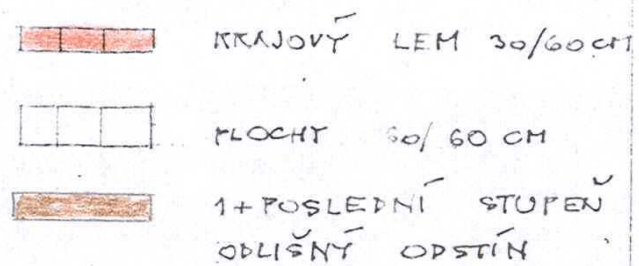 KRAJOVÝ LEM 30/60 CM
PLOCHY 60/60 CM
1+POSLEDNÍ STUPEŇ
ODLIŠNÝ ODSTÍN